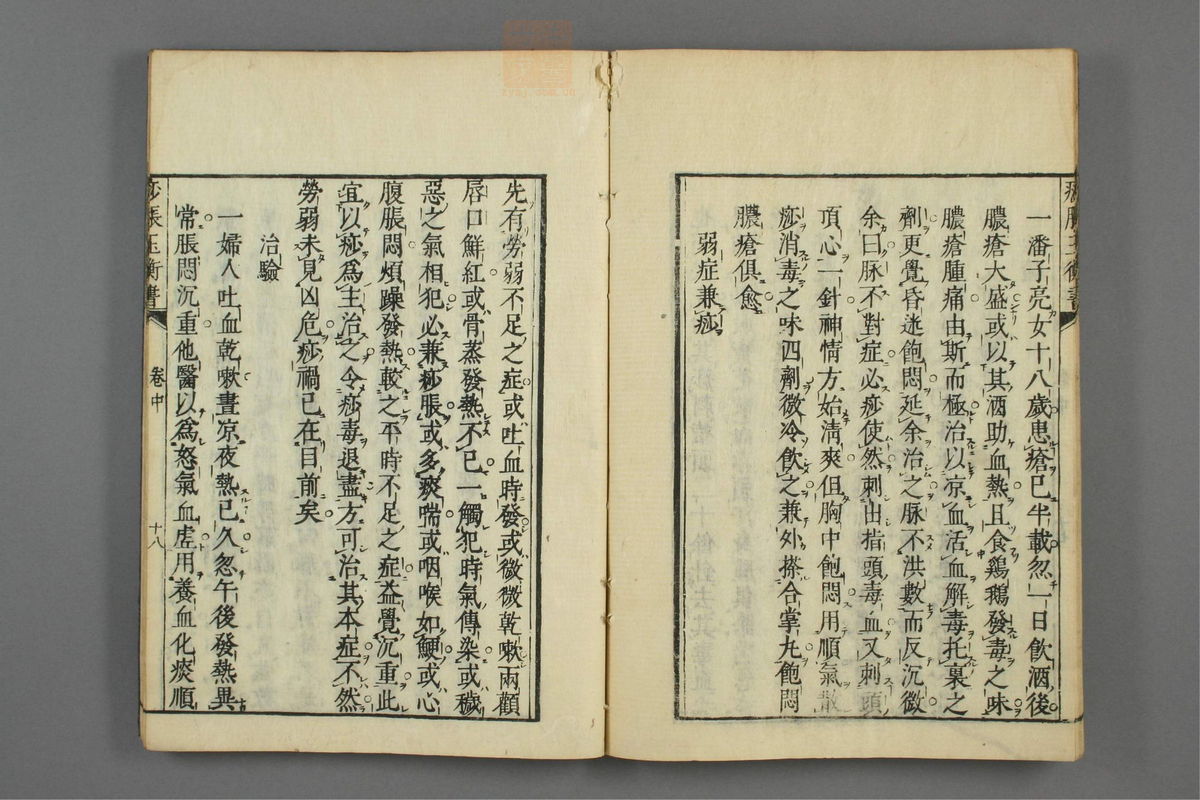 一潘子亮女十八歲患瘡已半載忽一日飲酒後
膿瘡大盛或以其酒助血熱且食鷄鵝發毒之味
膿瘡腫痛由斯而極治以凉血活血解毒托裏之
劑更覺昏迷飽悶延余治之脉不洪數而反沉微
余曰脉不對症必痧使然刺出指頭毒血又刺頭
頂心一針神情方始清爽但胸中飽悶用順氣散
痧消毒之味四劑微冷飲之兼外搽合掌丸飽悶
膿瘡俱愈
弱症兼痧
先有勞弱不足之症或吐血時發或微微乾嗽兩顴
唇口鮮紅或骨蒸發熱不已一觸犯時氣傳染或穢
惡之氣相犯必兼痧脹或多痰喘或咽喉如鯁或心
腹脹悶煩躁發熱較之平時不足之症益覺沉重此
宜以痧爲主治之令痧毒退盡方可治其本症不然
勞弱未見凶危痧禍已在目前矣
治驗
一婦人吐血乾嗽晝凉夜熱已久忽午後發熱異
常脹悶沉重他醫以爲怒氣血虛用養血化痰順
痧脹玉衡書
卷中
十八